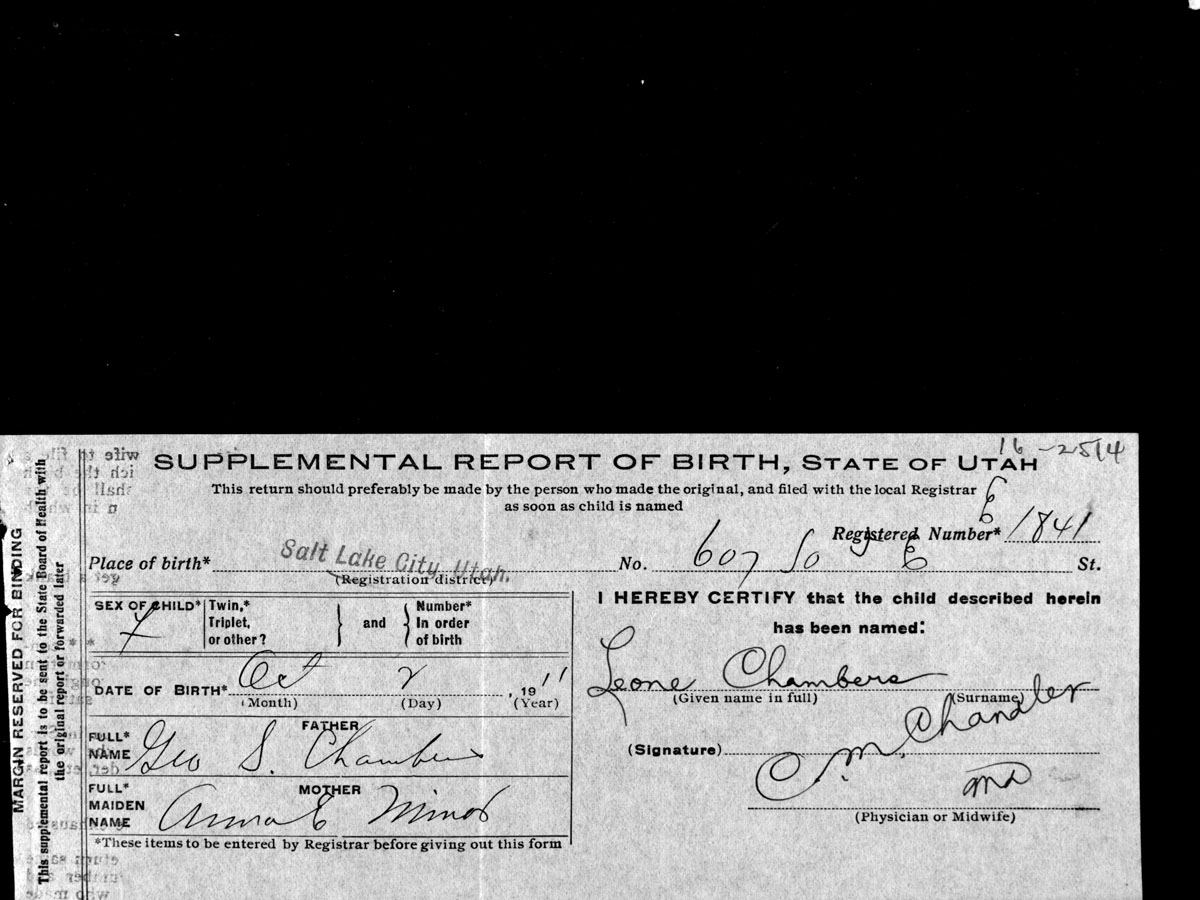 16-2514
SUPPLEMENTAL REPORT OF BIRTH, STATE OF UTAH
This return should preferably be made by the person who made the original, and filed with the local Registrar
as soon as child is named
Registered Number* 1841
Place of birth* Salt Lake City, Utah. No. 607 So 5 E St.
(Registration district)
SEX OF CHILD* F
Twin,*
Triplet,
or other?
and
Number*
In order
of birth
I HEREBY CERTIFY that the child described herein
has been named:
DATE OF BIRTH* Oct 2, 1911
(Month) (Day) (Year)
Leone Chambers
(Given name in full) (Surname)
FATHER
FULL*
NAME Geo S. Chambers
(Signature) C. M. Chandler
MD
(Physician or Midwife)
MOTHER
FULL*
MAIDEN
NAME Anna E Minor
*These items to be entered by Registrar before giving out this form
MARGIN RESERVED FOR BINDING
This supplemental report is to be sent to the State Board of Health with
the original report or forwarded later